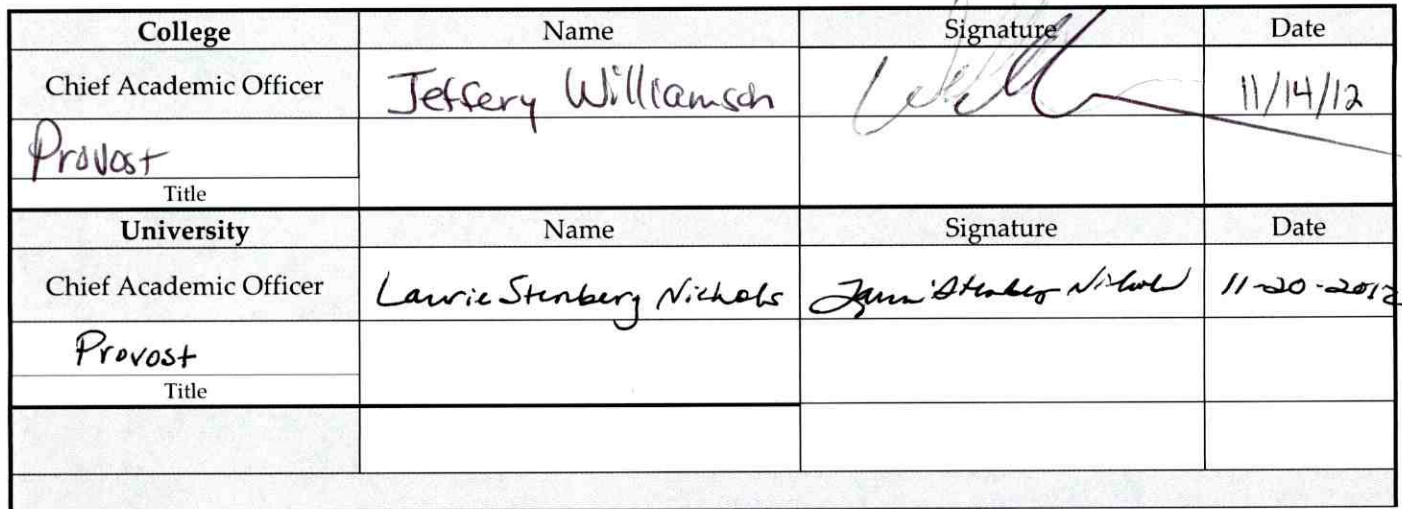 College Name Signature Date
Chief Academic Officer Jeffery Williamson 11/14/12
Provost
Title
University Name Signature Date
Chief Academic Officer Laurie Stenberg Nichols Laurie Stenberg Nichols 11-20-2012
Provost
Title